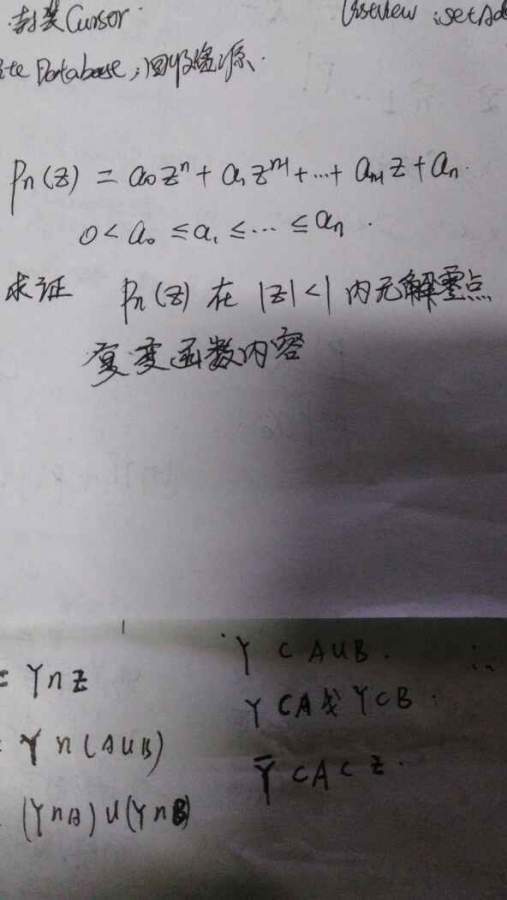 封装Cursor.
Listview :setAd
ite Database,回收资源.
Pn(z) = a₀zⁿ + a₁zⁿ⁻¹ + ... + aₙ₋₁z + aₙ.
0 < a₀ ≤ a₁ ≤ ... ≤ aₙ.
求证 Pn(z) 在 |z|<1 内无解零点
复变函数内容
= Y∩Z
Y ⊂ A∪B.
Y∩(A∪B)
Y⊂A或Y⊂B.
(Y∩A)∪(Y∩B)
Y̅⊂A⊂Z.